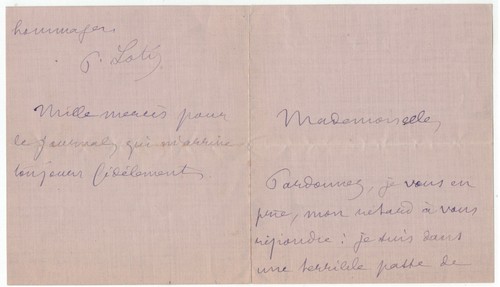 Mademoiselle,
Pardonnez, je vous en
prie, mon retard à vous
répondre : je suis dans
une terrible passe de
hommages
P. Loti
Mille mercis pour
le journal qui m'arrive
toujours fidèlement